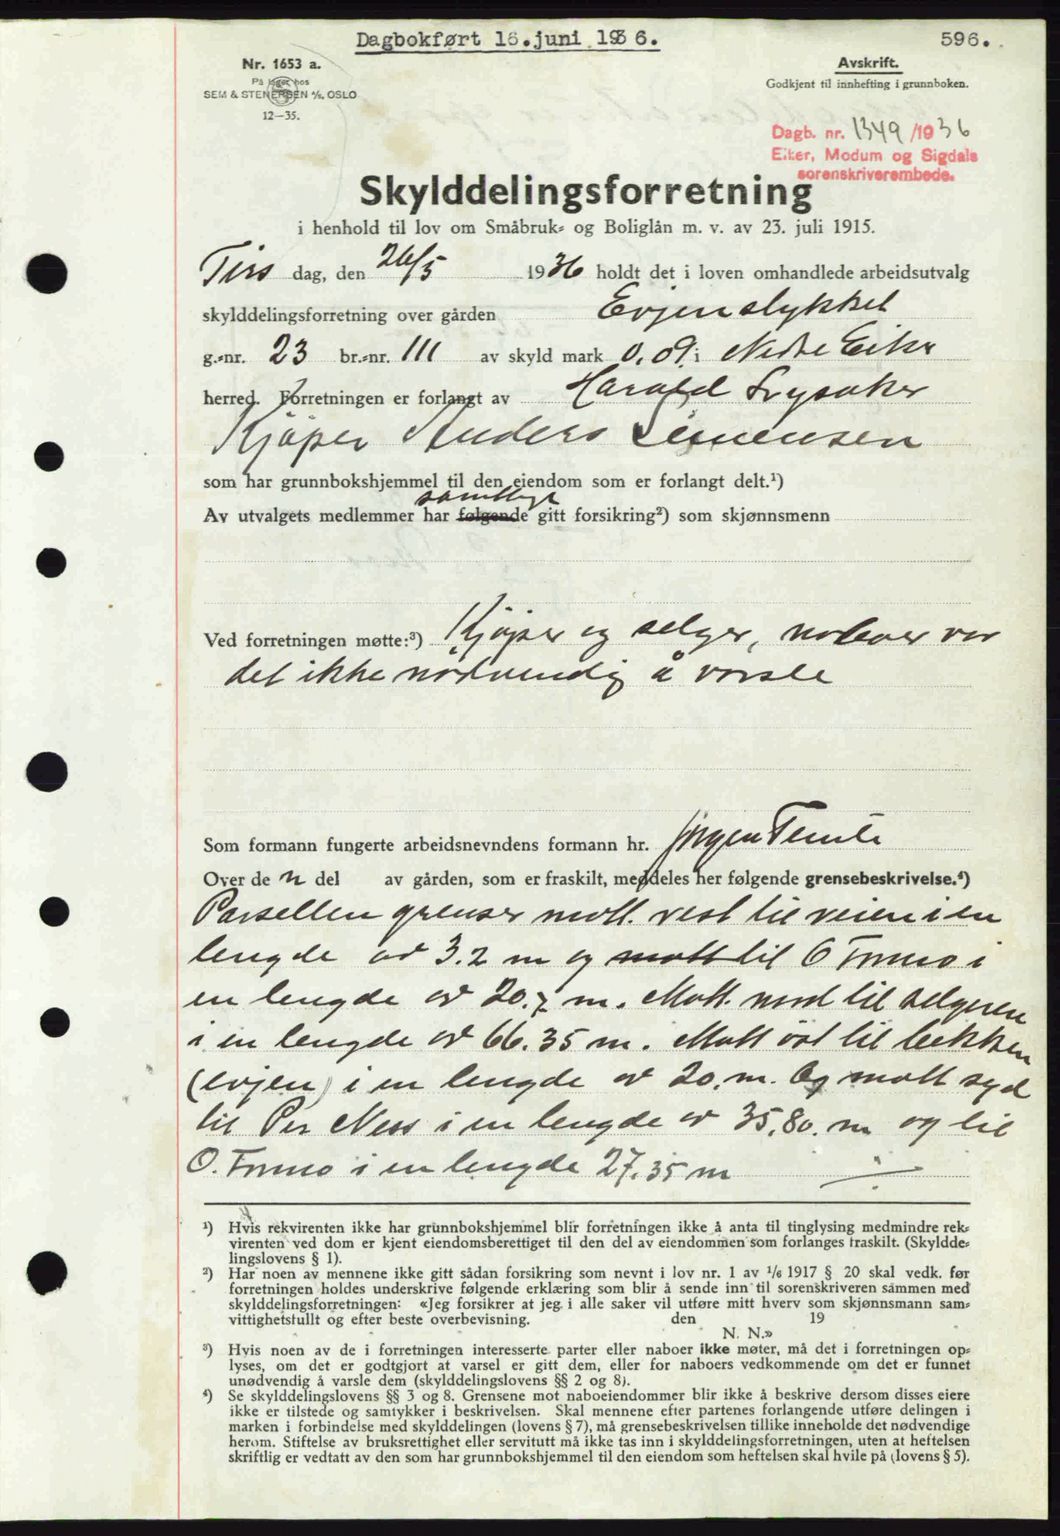 Dagbokført 16.juni 1936.
596.
Nr. 1653 a.
På lager hos
SEM & STENERSEN A/S, OSLO
12-35.
Avskrift.
Godkjent til innhefting i grunnboken.
Dagb. nr. 1349/1936
Eiker, Modum og Sigdals
sorenskriverembede.
Skylddelingsforretning
i henhold til lov om Småbruk- og Boliglån m. v. av 23. juli 1915.
Tirs dag, den 26/5 1936 holdt det i loven omhandlede arbeidsutvalg
skylddelingsforretning over gården Evjenstykket
g.-nr. 23 br.-nr. 111 av skyld mark 0.09 i Nedre Eiker
herred. Forretningen er forlangt av Harald Lysaker
Kjöper Anders Simensen
som har grunnbokshjemmel til den eiendom som er forlangt delt.¹)
samtlige
Av utvalgets medlemmer har følgende gitt forsikring²) som skjønnsmenn
Ved forretningen møtte:³) Kjöper og selger, naboer var
det ikke nödvendig å varsle
Som formann fungerte arbeidsnevndens formann hr. Jörgen Temte
Over de n del av gården, som er fraskilt, meddeles her følgende grensebeskrivelse.⁴)
Parsellen grenser mott. vest til veien i en
lengde av 3.2 m og mott til O Formo i
en lengde av 20.7 m. Mott. nord til selgeren
i en lengde av 66.35 m. Mott öst til bekken
(evjen) i en lengde av 20.m. Og mott syd
til Per Ness i en lengde av 35.80. m og til
O. Formo i en lengde 27.35 m
¹) Hvis rekvirenten ikke har grunnbokshjemmel blir forretningen ikke å anta til tinglysing medmindre rek-
virenten ved dom er kjent eiendomsberettiget til den del av eiendommen som forlanges fraskilt. (Skyldde-
lingslovens § 1).
²) Har noen av mennene ikke gitt sådan forsikring som nevnt i lov nr. 1 av 1/6 1917 § 20 skal vedk. før
forretningen holdes underskrive følgende erklæring som blir å sende inn til sorenskriveren sammen med
skylddelingsforretningen: «Jeg forsikrer at jeg i alle saker vil utføre mitt hverv som skjønnsmann sam-
vittighetsfullt og efter beste overbevisning. den 19
N. N.»
³) Hvis noen av de i forretningen interesserte parter eller naboer ikke møter, må det i forretningen op-
lyses, om det er godtgjort at varsel er gitt dem, eller for naboers vedkommende om det er funnet
unødvendig å varsle dem (skylddelingslovens §§ 2 og 8).
⁴) Se skylddelingslovens §§ 3 og 8. Grensene mot naboeiendommer blir ikke å beskrive dersom disses eiere
ikke er tilstede og samtykker i beskrivelsen. Skal mennene efter partenes forlangende utføre delingen i
marken i forbindelse med skylddelingen (lovens § 7), må grensebeskrivelsen tillike inneholde det nødvendige
herom. Stiftelse av bruksrettighet eller servitutt må ikke tas inn i skylddelingsforretningen, uten at heftelsen
skriftlig er vedtatt av den som har grunnbokshjemmel til den eiendom som heftelsen skal hvile på (lovens § 5).